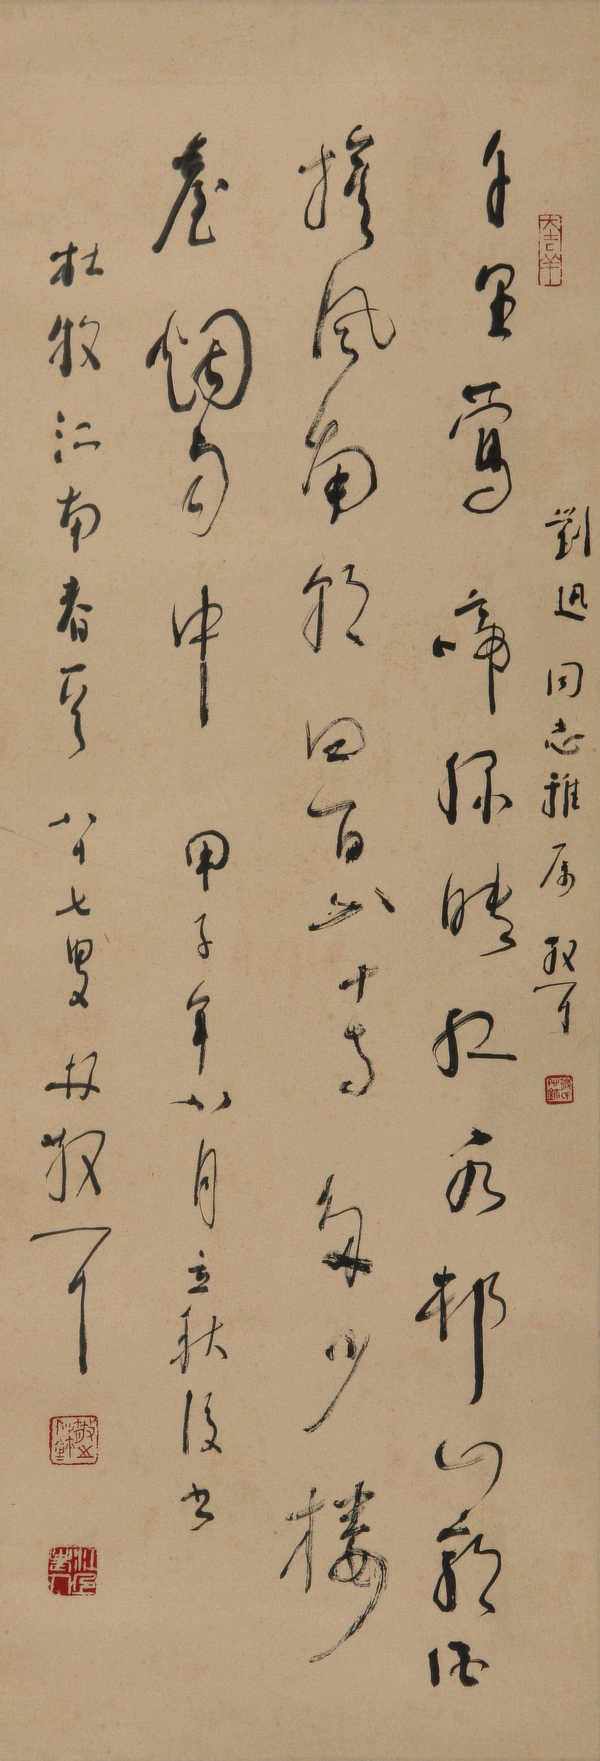 大吉羊
劉迅同志雅属 散耳
千里鶯啼綠映紅水邨山郭酒
旗風南朝四百八十寺多少樓
臺烟雨中 甲子年八月立秋後書
杜牧江南春一首 八十七叟林散耳